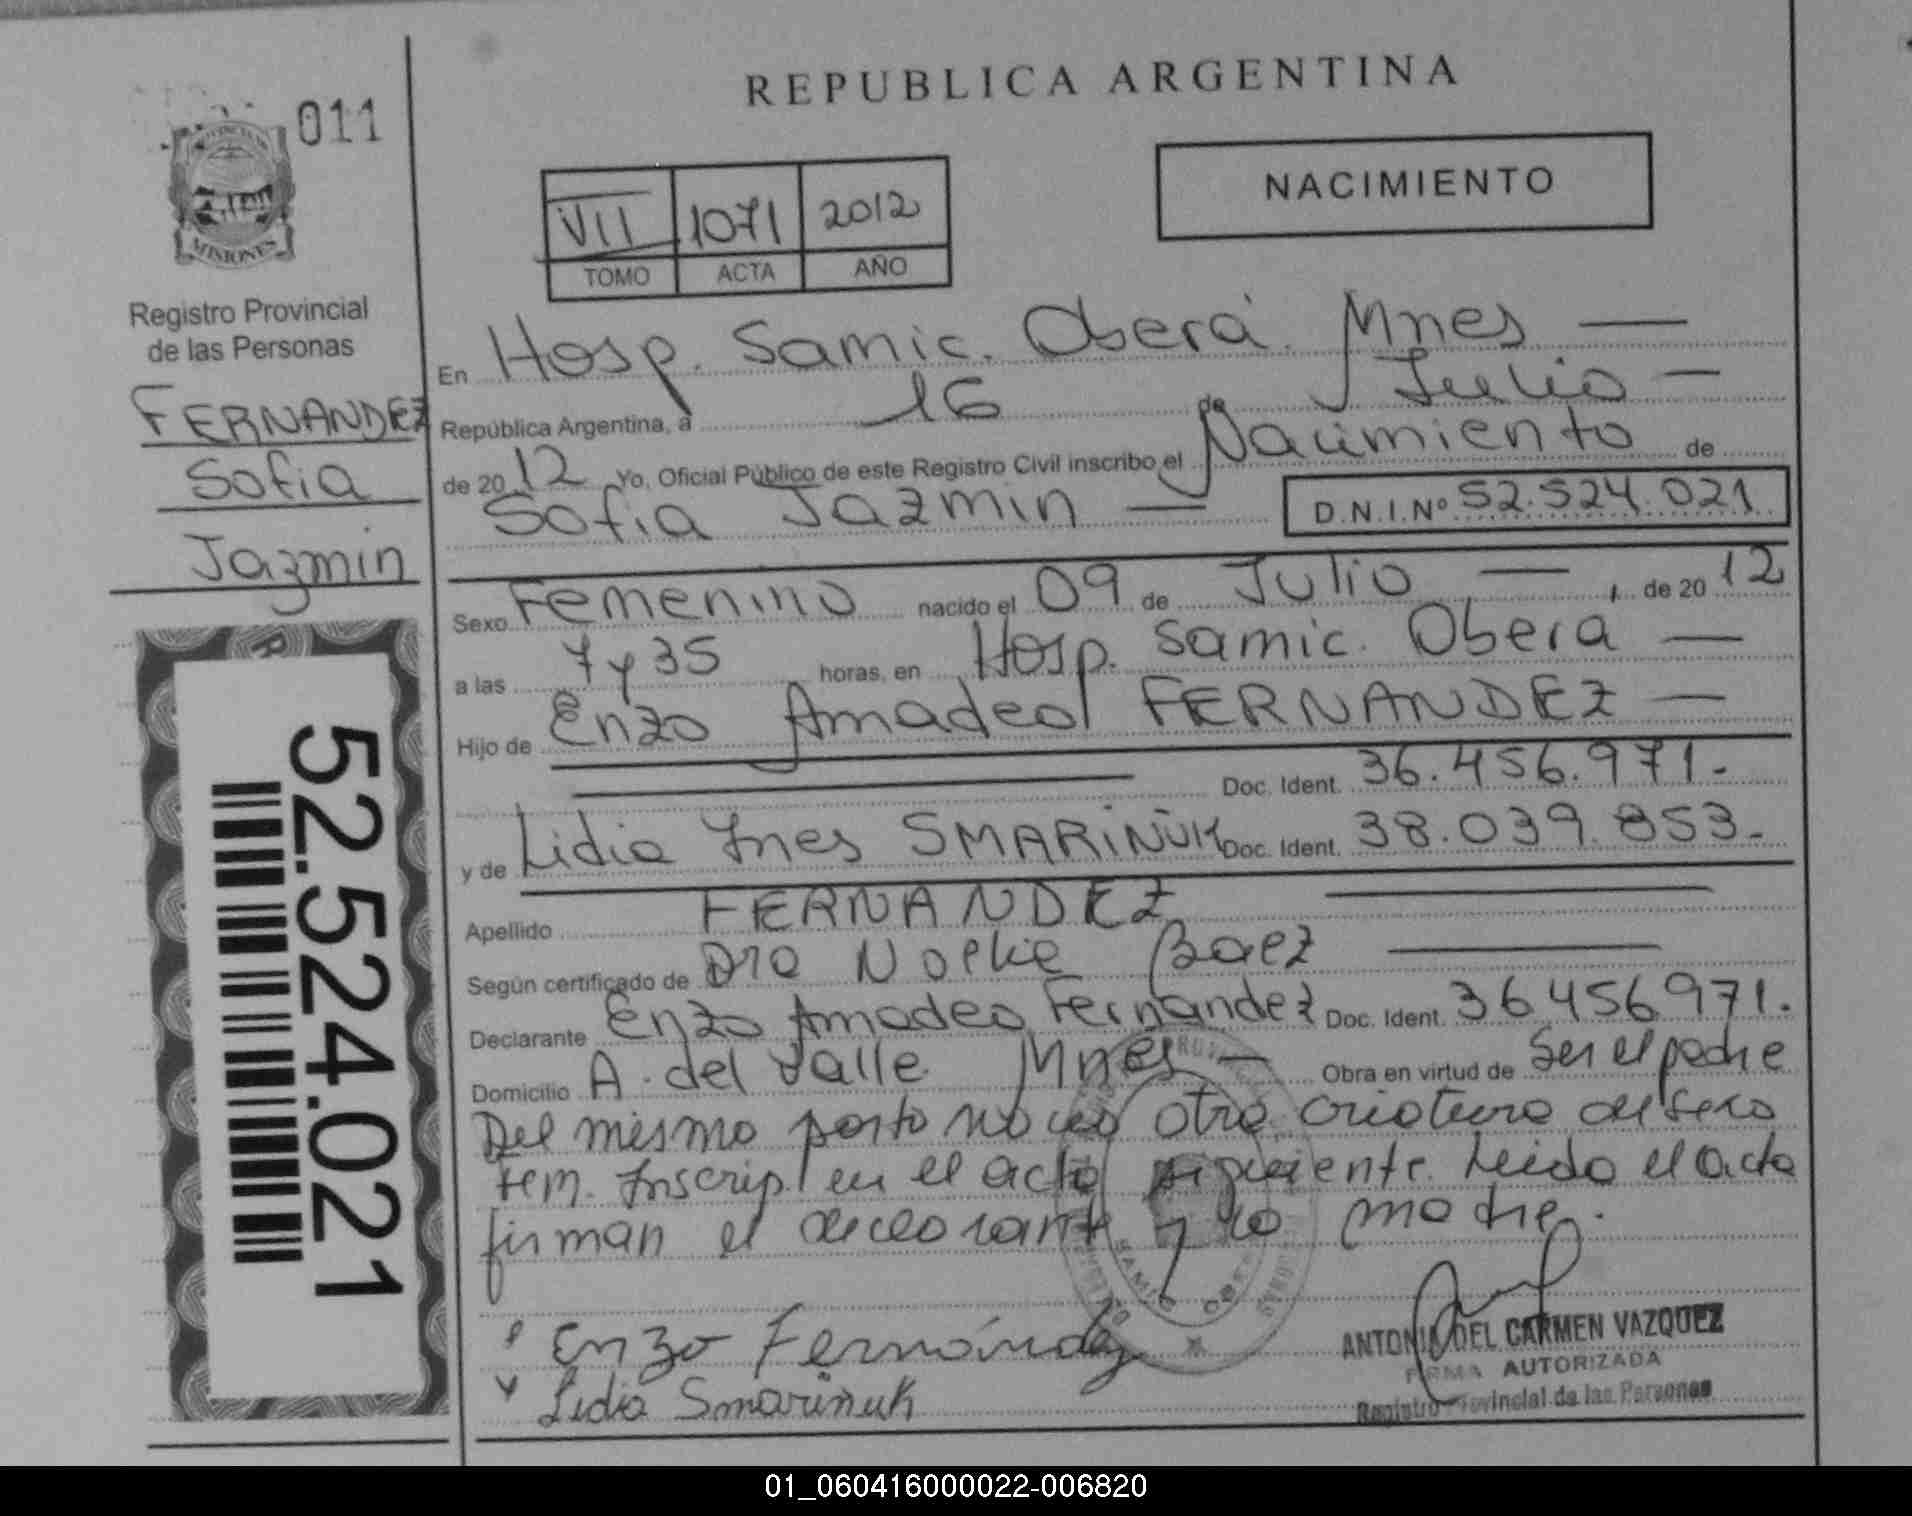 011
REPUBLICA ARGENTINA
NACIMIENTO
VII 1071 2012
TOMO ACTA AÑO
MISIONES
Registro Provincial
de las Personas
FERNANDEZ
Sofia
Jazmin
52.524.021
En Hosp. Samic. Oberá. Mnes —
República Argentina, a 16 de Julio —
de 2012 Yo, Oficial Público de este Registro Civil inscribo el Nacimiento de
Sofia Jazmin — D.N.I.Nº 52.524.021
Sexo Femenino nacido el 09 de Julio — , de 2012
a las 7 y 35 horas, en Hosp. Samic. Obera —
Hijo de Enzo Amadeo FERNANDEZ —
Doc. Ident. 36.456.971.-
y de Lidia Ines SMARIÑUK Doc. Ident. 38.039.853-
Apellido FERNANDEZ
Según certificado de Dra Noelia Baez
Declarante Enzo Amadeo Fernandez Doc. Ident. 36456971.
Domicilio A. del Valle Mnes — Obra en virtud de Ser el padre
Del mismo parto otra criatura de sexo
fem. Inscrip. en el acta siguiente. Leida el acta
firman el declarante y la madre.
Enzo Fernández
Lidia Smariñuk
ANTONIA DEL CARMEN VAZQUEZ
FIRMA AUTORIZADA
Registro Provincial de las Personas
01_060416000022-006820